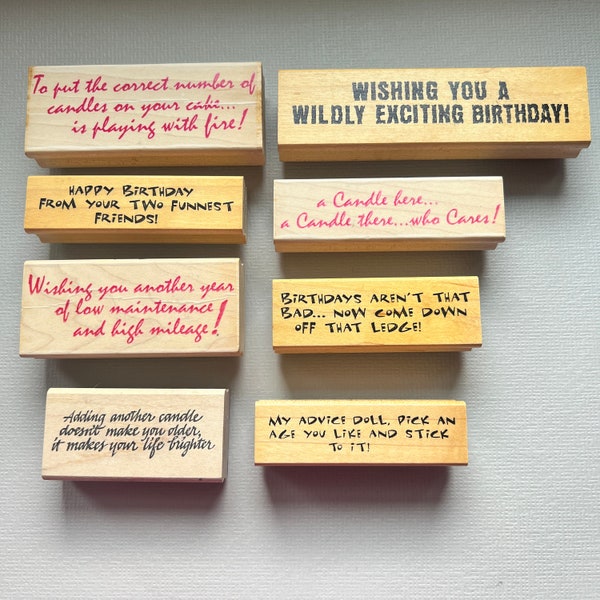 To put the correct number of
candles on your cake...
is playing with fire!
WISHING YOU A
WILDLY EXCITING BIRTHDAY!
HAPPY BIRTHDAY
FROM YOUR TWO FUNNEST
FRIENDS!
a Candle here...
a Candle there...who Cares!
Wishing you another year
of low maintenance
and high mileage!
BIRTHDAYS AREN'T THAT
BAD... NOW COME DOWN
OFF THAT LEDGE!
Adding another candle
doesn't make you older,
it makes your life brighter
MY ADVICE DOLL, PICK AN
AGE YOU LIKE AND STICK
TO IT!